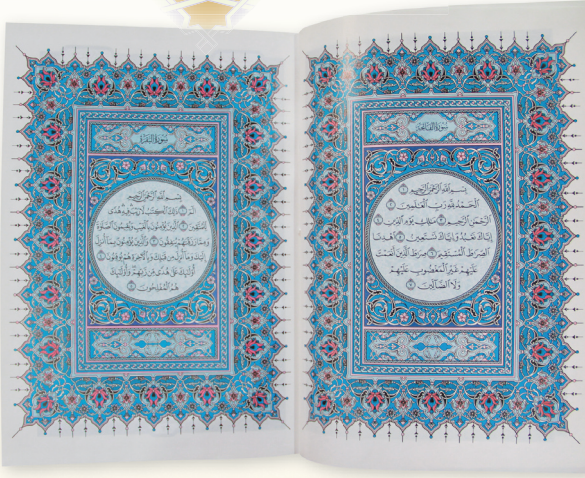 سُورَةُ الفَاتِحَةِ
بِسْمِ اللَّهِ الرَّحْمَٰنِ الرَّحِيمِ ۝١
الْحَمْدُ لِلَّهِ رَبِّ الْعَالَمِينَ ۝٢
الرَّحْمَٰنِ الرَّحِيمِ ۝٣ مَالِكِ يَوْمِ الدِّينِ ۝٤
إِيَّاكَ نَعْبُدُ وَإِيَّاكَ نَسْتَعِينُ ۝٥ اهْدِنَا
الصِّرَاطَ الْمُسْتَقِيمَ ۝٦ صِرَاطَ الَّذِينَ أَنْعَمْتَ
عَلَيْهِمْ غَيْرِ الْمَغْضُوبِ عَلَيْهِمْ
وَلَا الضَّالِّينَ ۝٧
سُورَةُ البَقَرَةِ
بِسْمِ اللَّهِ الرَّحْمَٰنِ الرَّحِيمِ
الم ۝١ ذَٰلِكَ الْكِتَابُ لَا رَيْبَ فِيهِ هُدًى
لِلْمُتَّقِينَ ۝٢ الَّذِينَ يُؤْمِنُونَ بِالْغَيْبِ وَيُقِيمُونَ الصَّلَاةَ
وَمِمَّا رَزَقْنَاهُمْ يُنْفِقُونَ ۝٣ وَالَّذِينَ يُؤْمِنُونَ بِمَا أُنْزِلَ
إِلَيْكَ وَمَا أُنْزِلَ مِنْ قَبْلِكَ وَبِالْآخِرَةِ هُمْ يُوقِنُونَ ۝٤
أُولَٰئِكَ عَلَىٰ هُدًى مِنْ رَبِّهِمْ وَأُولَٰئِكَ
هُمُ الْمُفْلِحُونَ ۝٥